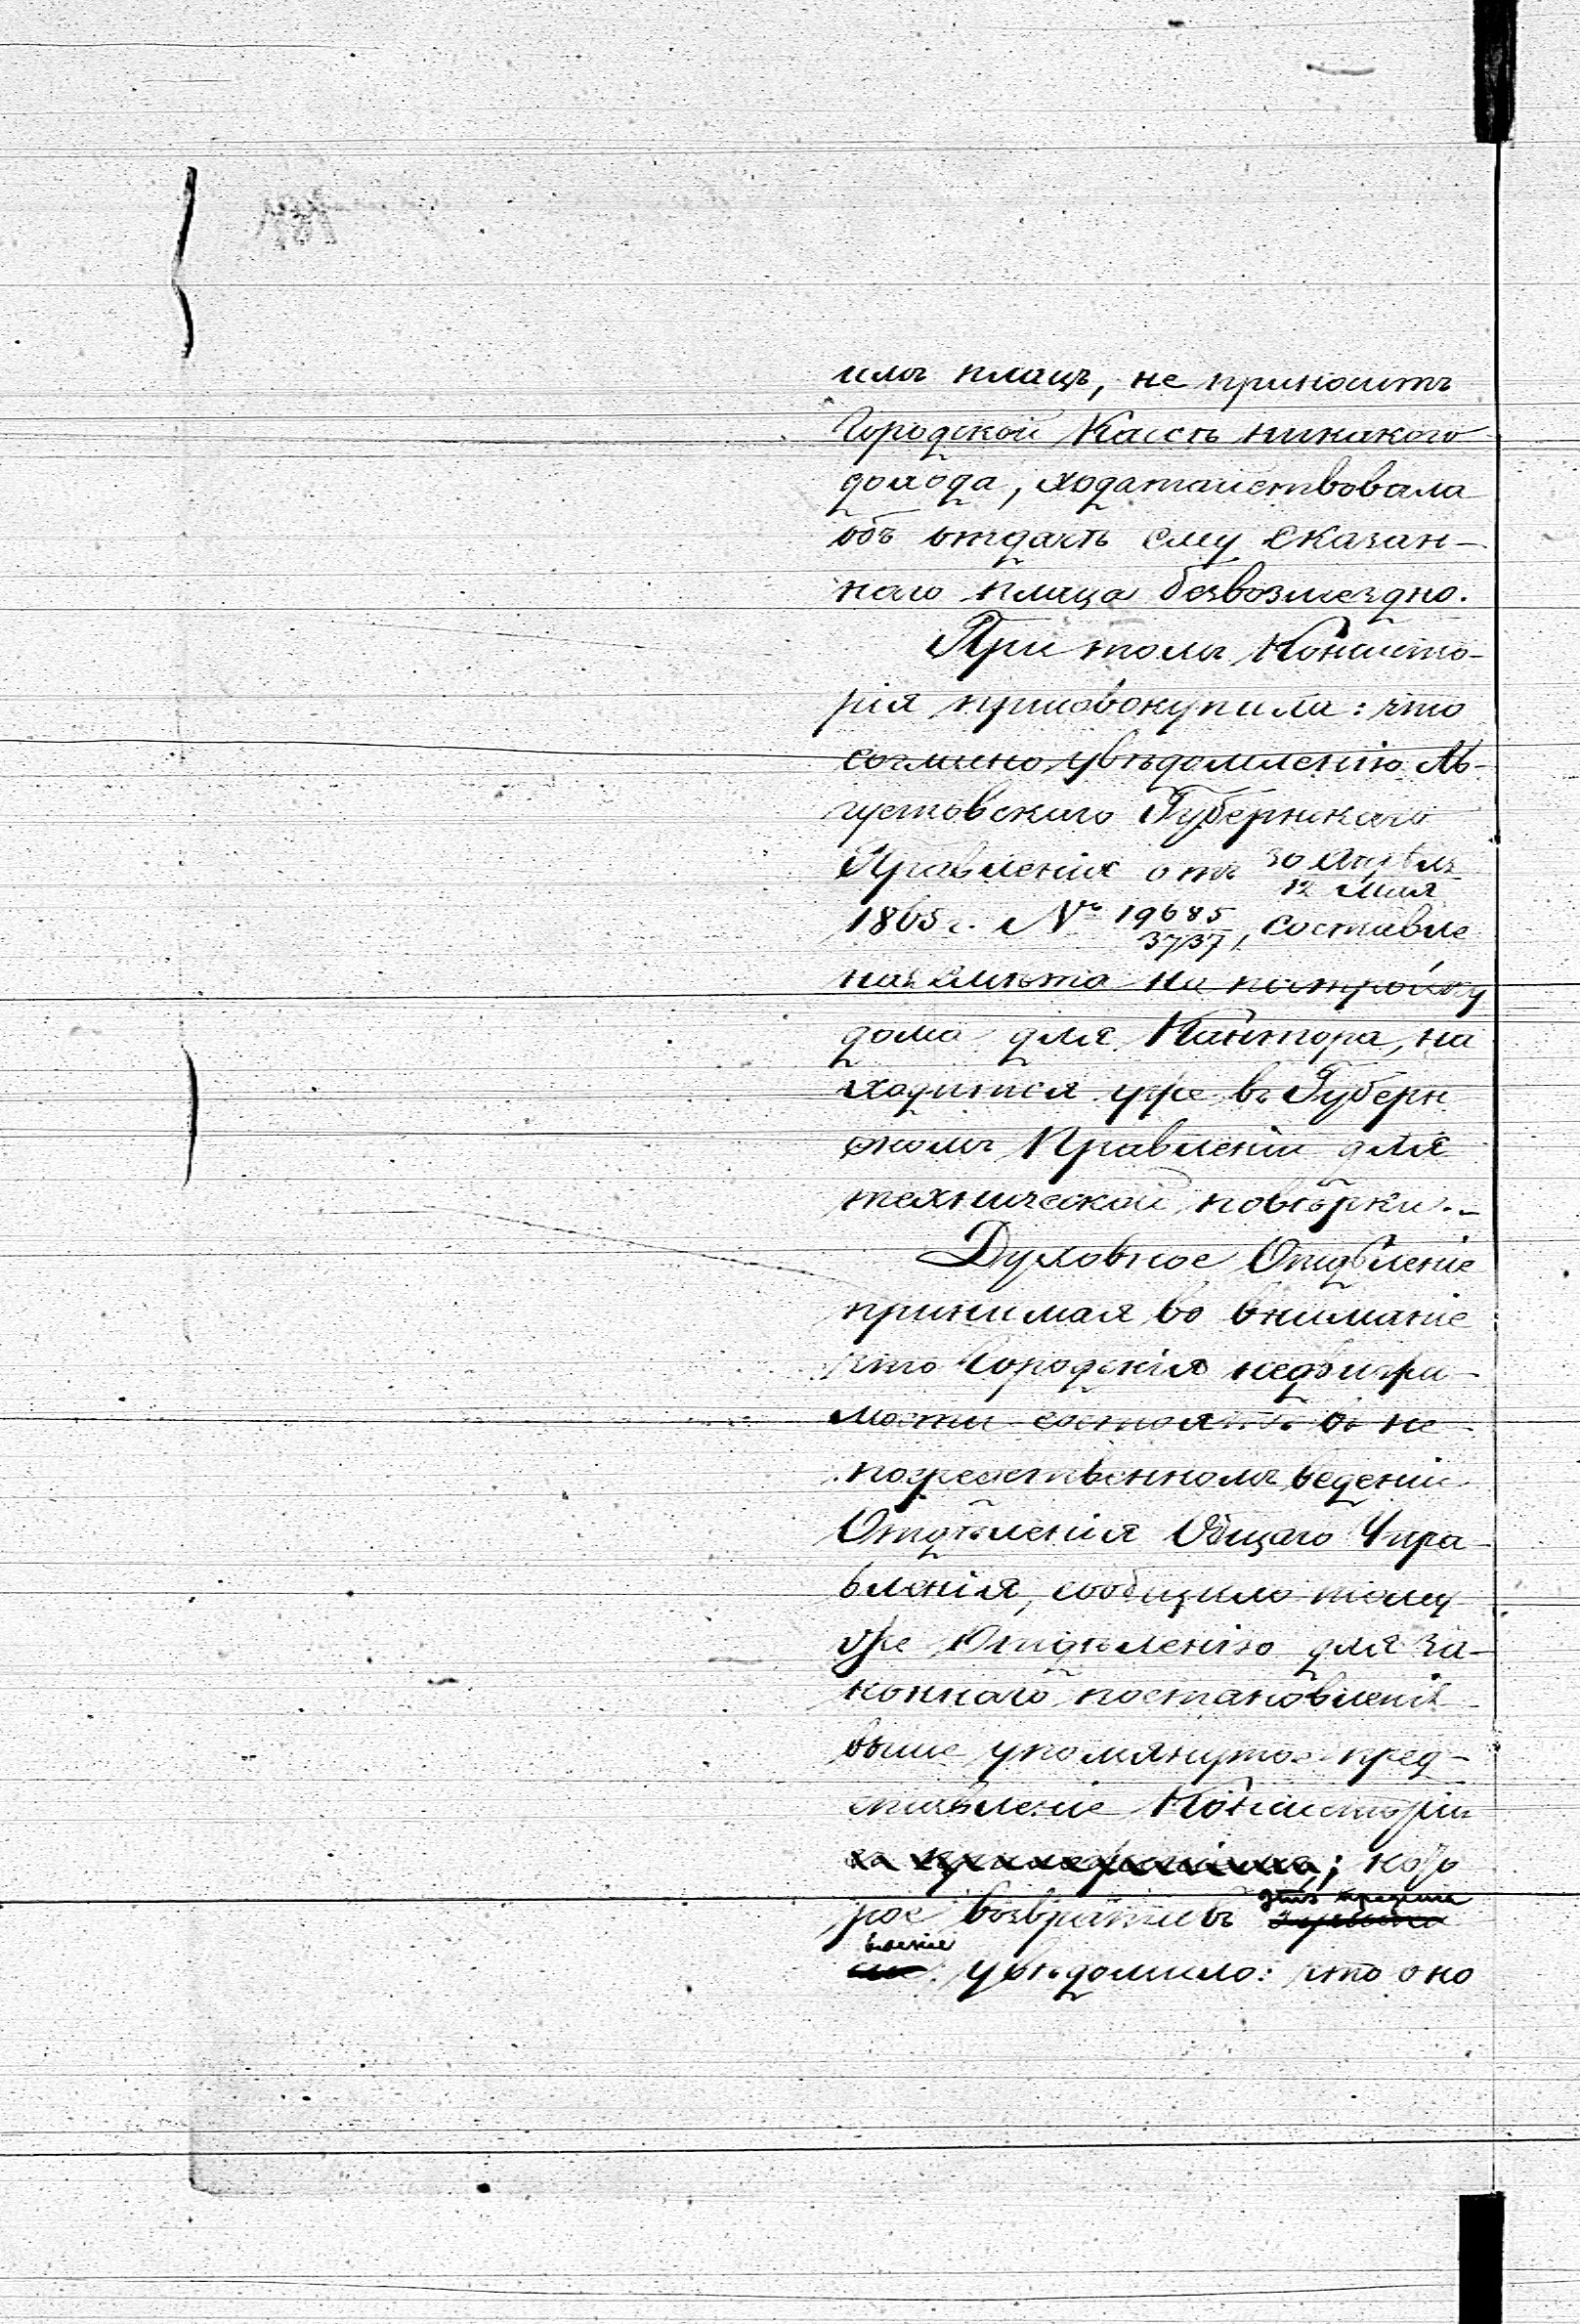 имъ плацъ, не приноситъ
Городской Кассѣ никакого
дохода, ходатайствовала
объ отдачѣ ему сказан-
наго плаца безвозмездно.
При томъ Консисто-
рія присовокупила: что
согласно увѣдомленію Ав-
густовскаго Губернскаго
Правленія отъ 30 Апрѣля
12 Мая
1865 г. № 19685
3737, составле
ная смѣта на постройку
дома для Кантора, на
ходится уже въ Губерн
скомъ Правленіи для
технической повѣрки.-
Духовное Отдѣленіе
принимая во вниманіе
что Городскія недвижи-
мости состоятъ въ не
посредственномъ веденіи
Отдѣленія Общаго Упра-
вленія, сообщило тому
же Отдѣленію для за-
коннаго постановленія
выше упомянутое пред-
ставленіе Консисторіи
; кото
это предста
рое возвративъ
вленіе
увѣдомило: что оно